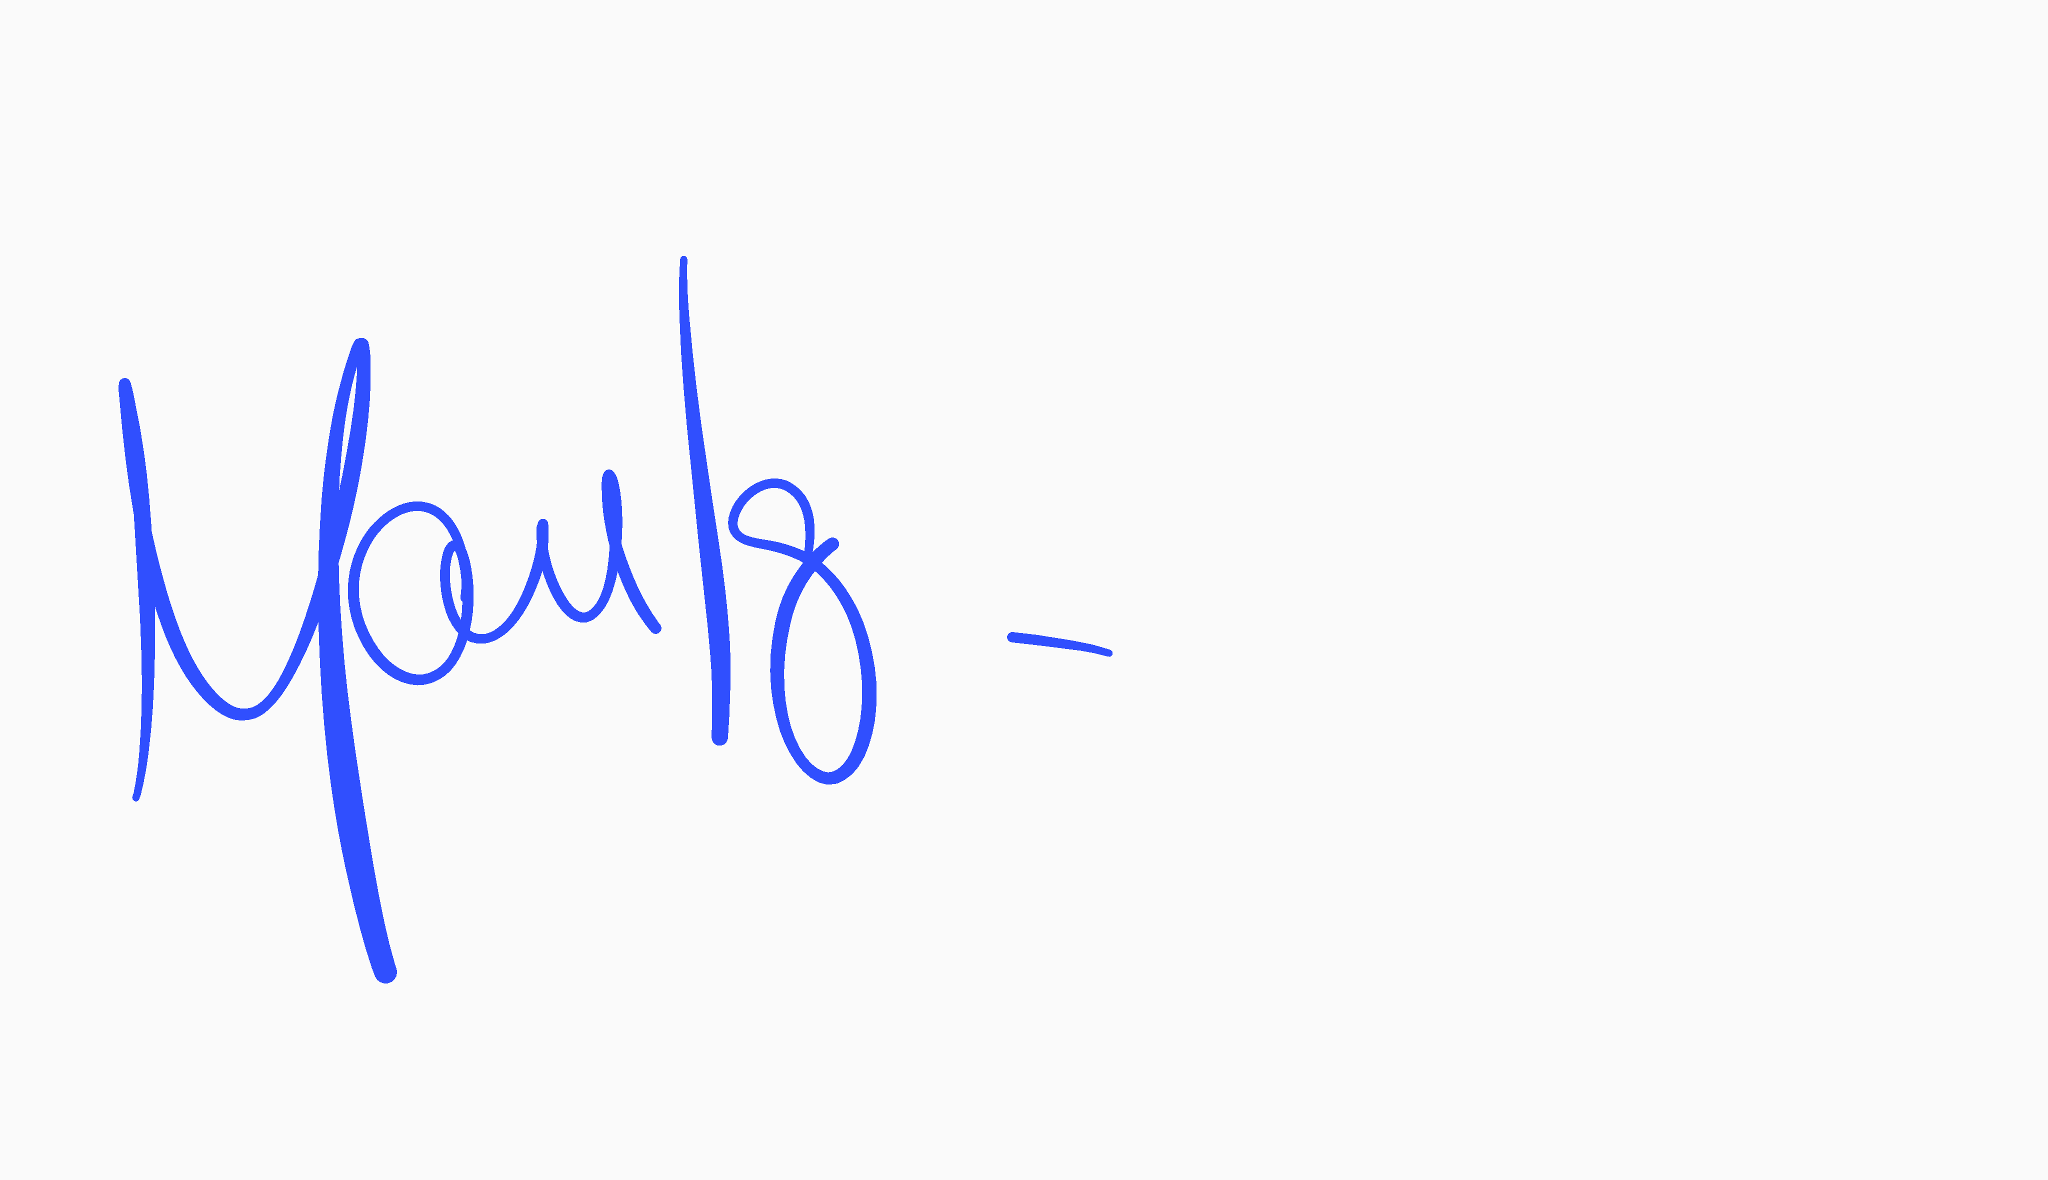 Mau 18 -